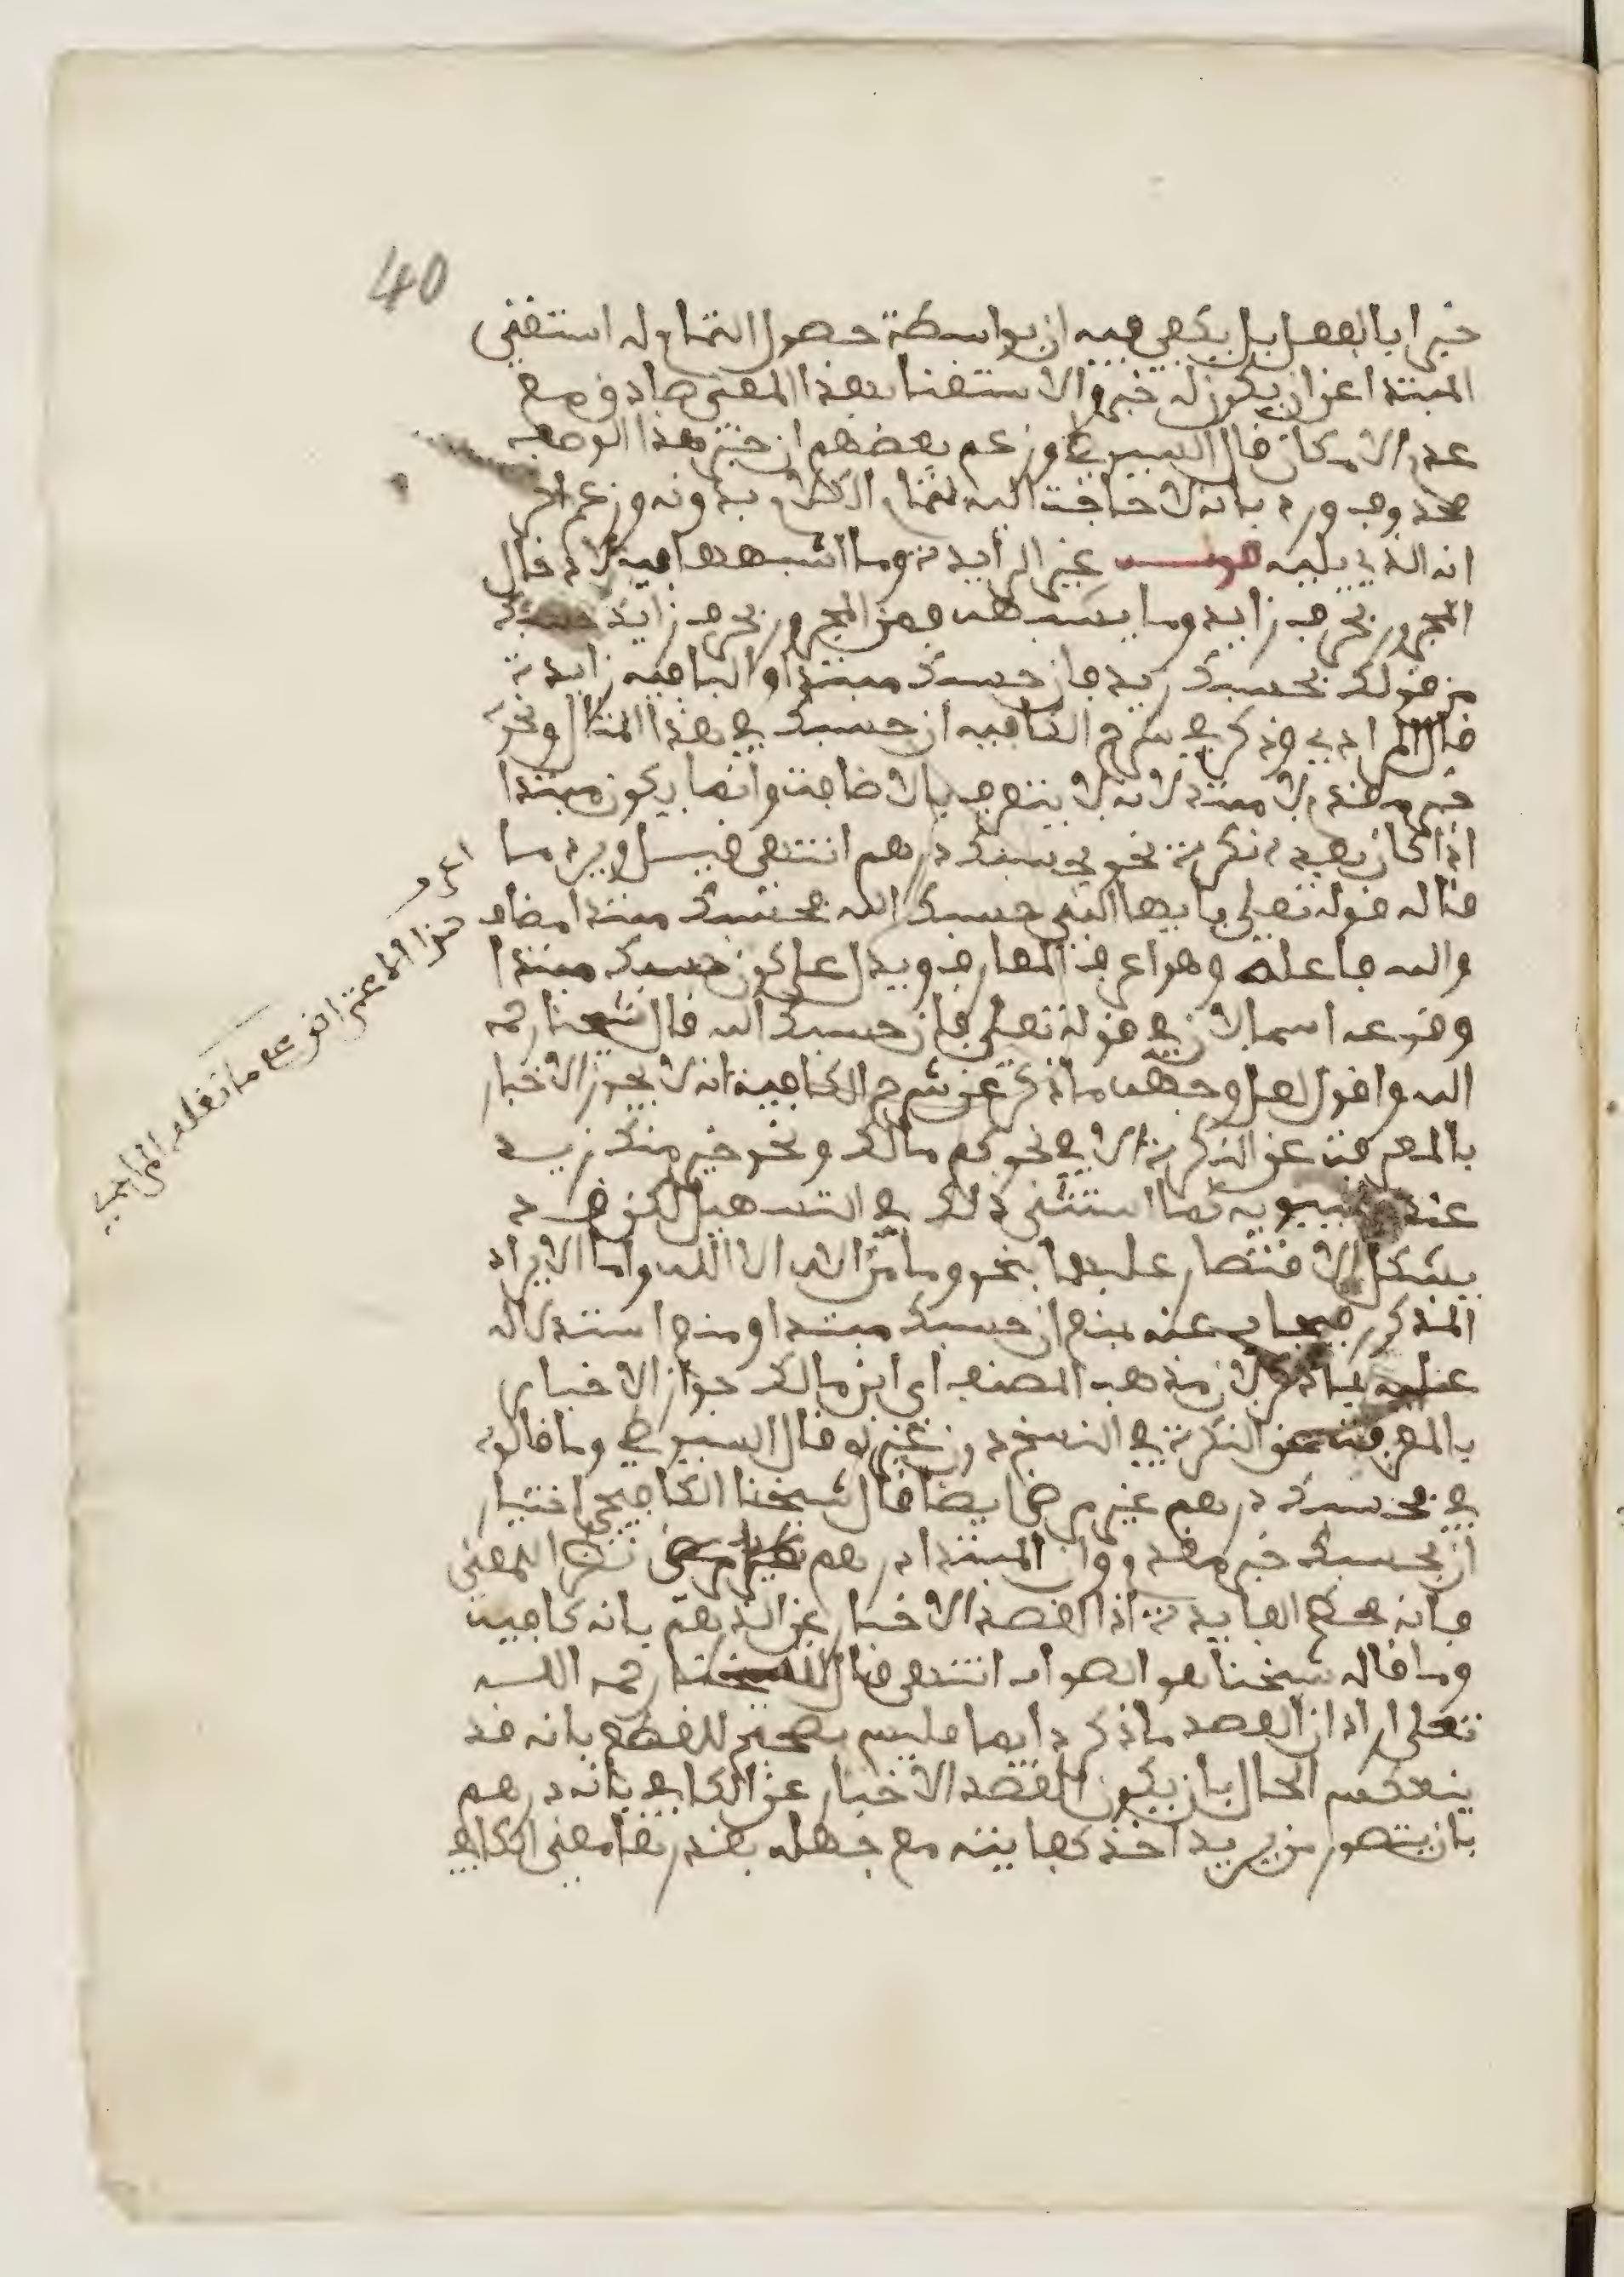 40
خبرا بالفعل بل يكفي فيه ان بواسطة حصول التمام له استغنى
المبتدا عن ان يكون له خبر والاستغنا بهذا المعنى صادق مع
عدم الامكان قال السيوطي وزعم بعضهم ان خبر هذا الوصف
محذوف ورد بانه لا حاجة اليه لتمام الكلام بدونه وزعم اخر
انه الذي يليه غير الزايدة وما اشبهها فيه قال
المجرور بحرف زايد وما يشبهه فمن المجرور بحرف زايد
من قولك بحسبك زيد فان حسبك مبتدا والبا فيه زايدة
قال المرادي وذكر في شرح الكافيه ان حسبك في هذا المثال ونحوه
خبر مقدم لا مبتدا لانه لا يتعرف بالاضافة وانما يكون مبتدا
اذا كان بعده نكرة نحو بحسبك درهم انتهى قيل ويرد ما
قاله قوله تعلى يايها النبي حسبك الله فحسبك مبتدا مضاف
والله فاعله وهو اعرف المعارف ويدل على كون حسبك مبتدا
وقوعه اسما لان في قوله تعلى فان حسبك الله قال شيخنا رحمه
الله واقول لعل وجهه ما ذكر عن شرح الكافية انه لا يجوز الاخبار
بالمعرفة عن النكرة الا في نحو كم مالك ونحو خير منك زيد
عند سيبويه كما استثنى ذلك في التسهيل لكن قد
يشكل الاقتصار عليها بنحو وما من اله الا الله واما الايراد
المذكور فيجاب عنه بمنع ان حسبك مبتدا ومنع استدلاله
عليه بما ذكر لان مذهب المصنف اي ابن مالك جواز الاخبار
بالمعرفة عن النكرة في النسخ دون غيره وقال السيوطي وما قالوه
في بحسبك درهم غير مرضي ايضا قال شيخنا الكافيجي اختيار
ان بحسبك خبر مقدم وان المبتدا درهم نظرا للمعنى
فانه محط الفايدة اذ القصد الاخبار عن الدرهم بانه كافيه
وما قاله شيخنا هو الصواب انتهى قال شيخنا رحمه الله
تعلى ان اراد ان القصد ما ذكر دايما فليس بصحيح للقطع بانه قد
ينعكس الحال بان يكون القصد الاخبار عن الكافي بانه درهم
بان يتصور من يريد اخذ كفايته مع جهله بقدرها معنى الكافي
هذا الاعتراض على ما نقله المرادي